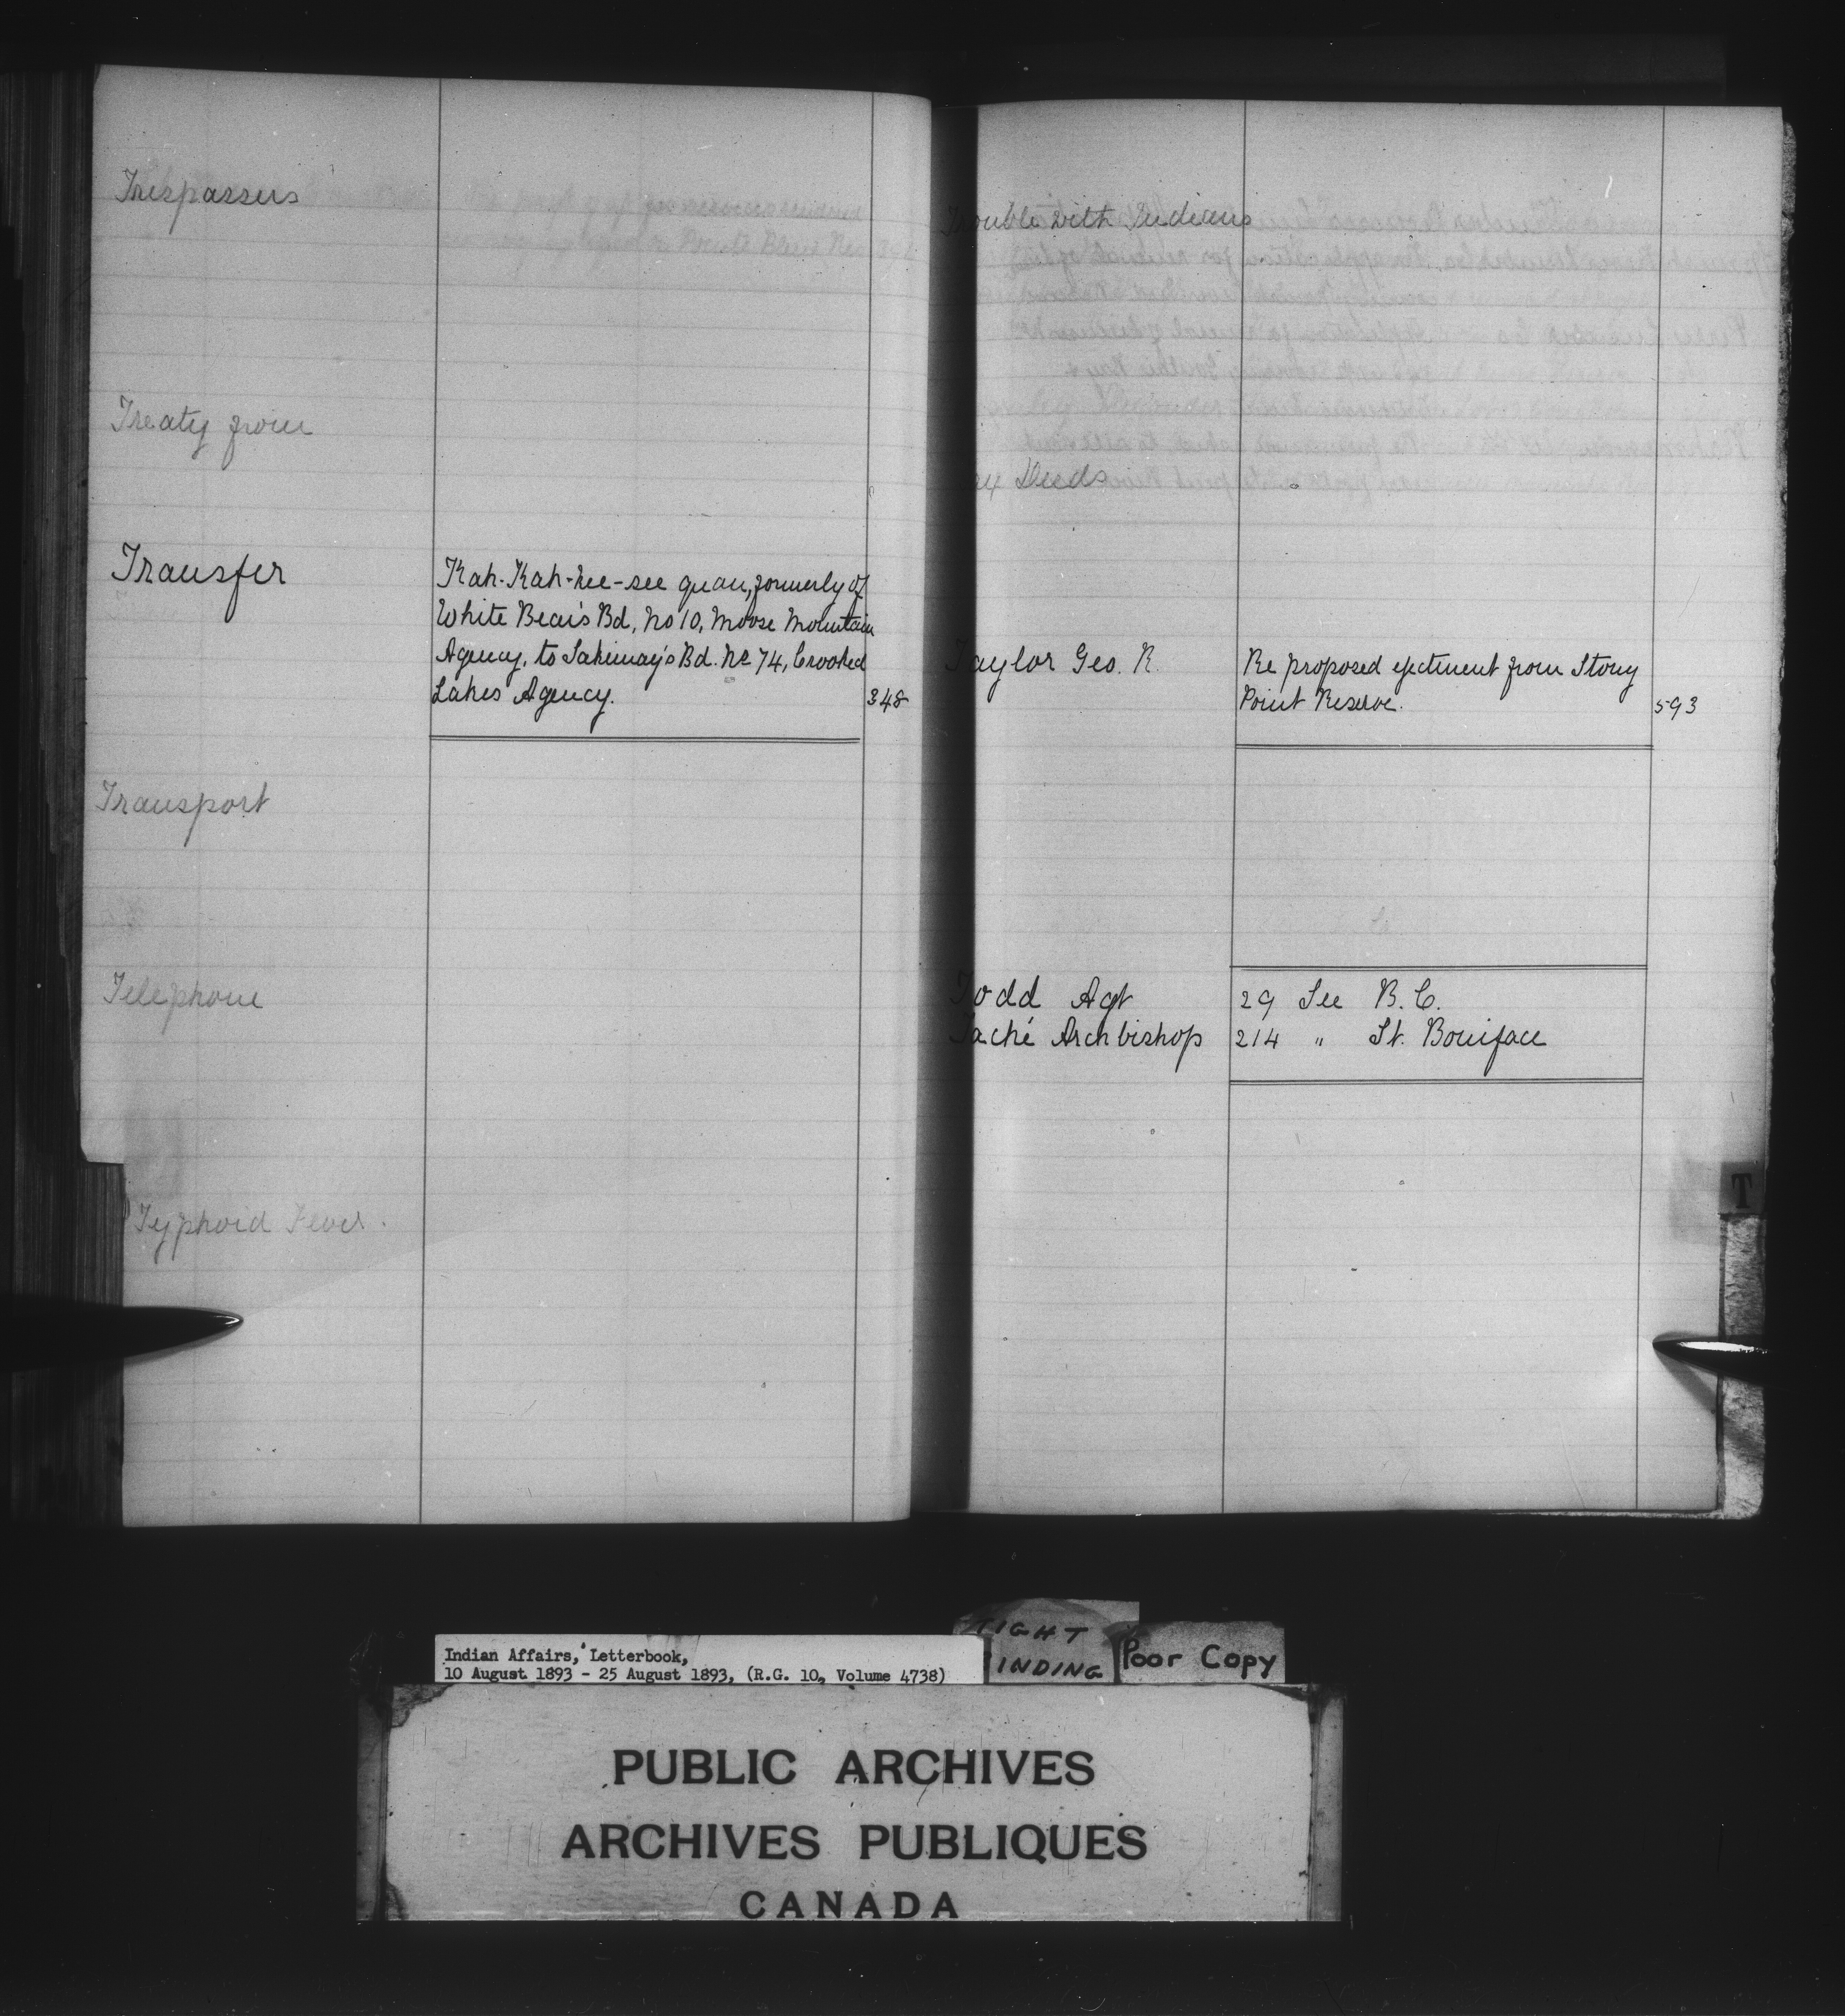 Trespassers
Treaty from
Transfer
Kah-Kah-kee-see quan, formerly of
White Bear's Bd, No 10, Moose Mountain
Agency, to Sakimay's Bd. No 74, Crooked
Lakes Agency. 348
Transport
Telephone
Typhoid Fever.
Trouble with Indians
Deeds
Taylor Geo. R. Re proposed ejectment from Stony
Point Reserve. 593
Todd Agt 29 See B.C.
Taché Archbishop 214 " St. Boniface
T
Indian Affairs, Letterbook,
10 August 1893 - 25 August 1893, (R.G. 10, Volume 4738)
TIGHT
BINDING
Poor Copy
PUBLIC ARCHIVES
ARCHIVES PUBLIQUES
CANADA